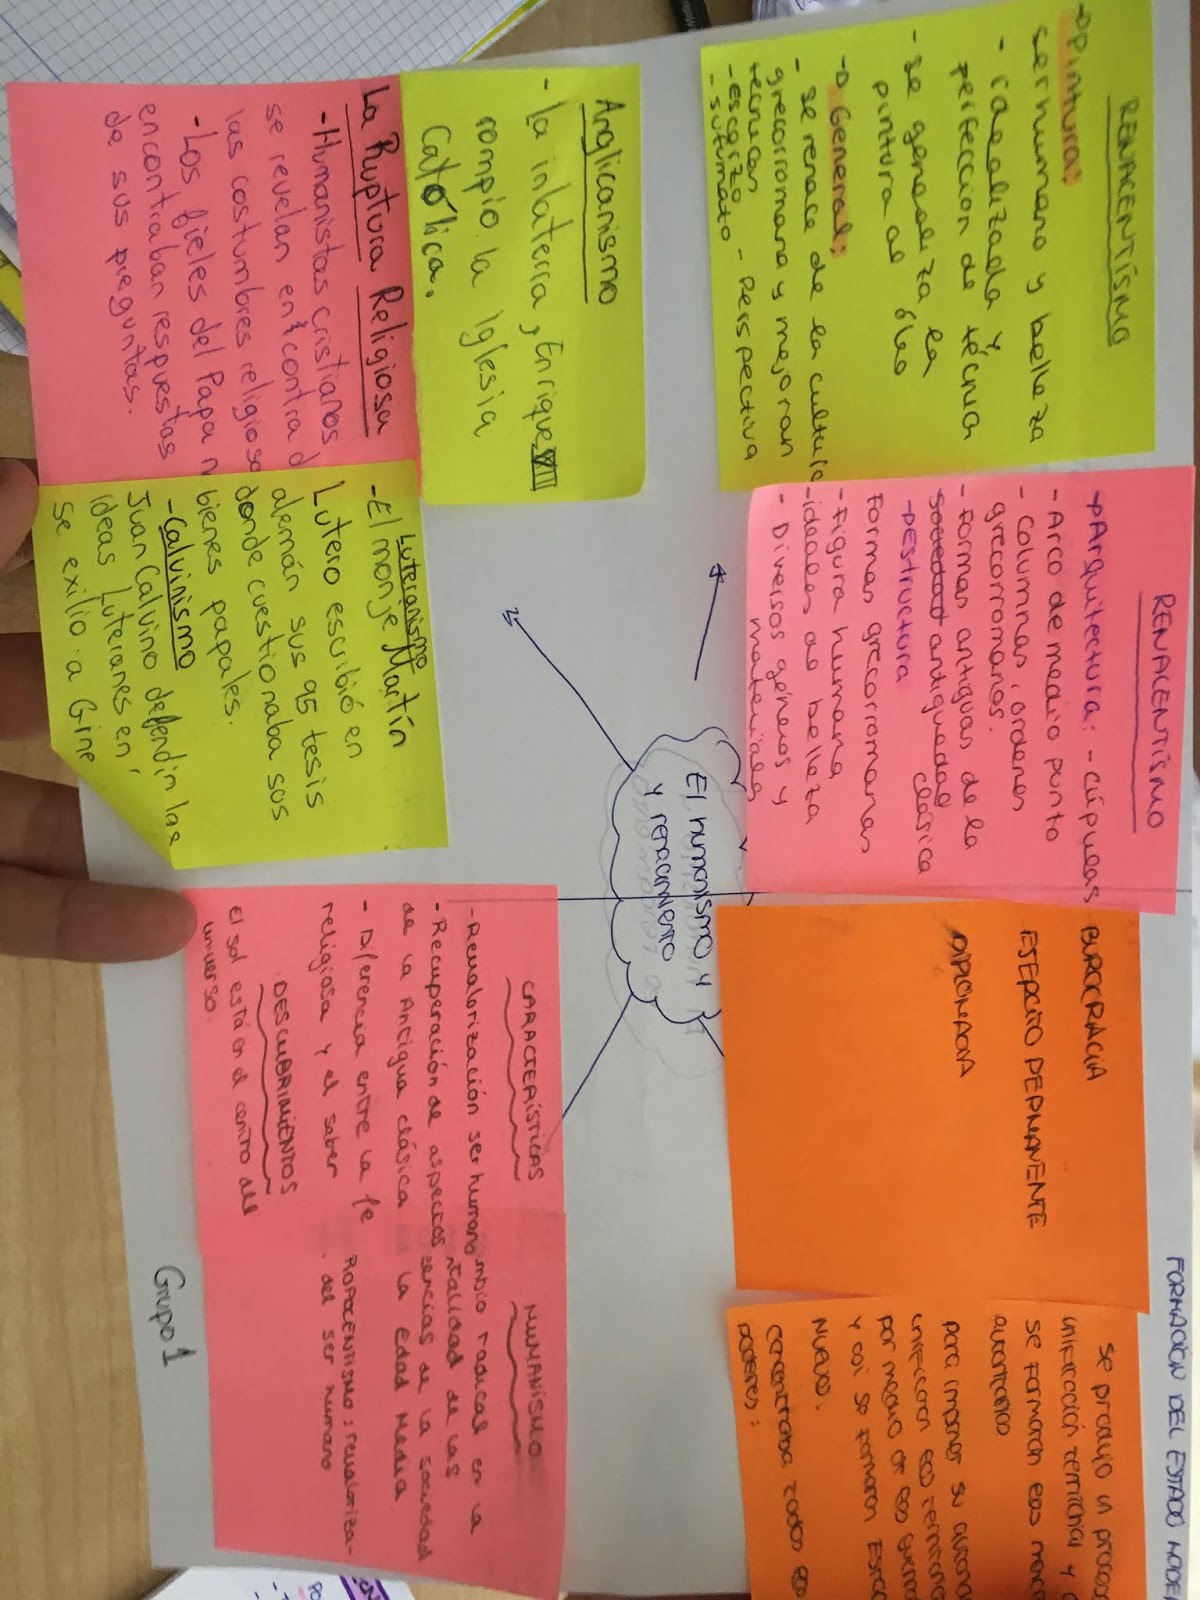 RENACENTISMO
Pinturas
ser humano y belleza
- idealizada y
perfección de técnica
- Se generaliza la
pintura al óleo
- D. General:
- se renace de la cultura
grecorromana y mejoran
tecnicas - Perspectiva
- Escorzo
- sufumato
RENACENTISMO
Arquitectura: - Cúpulas
- Arco de medio punto
- Columnas, órdenes
grecorromanos.
- Formas antiguas de la
antiguedad clásica
Formas grecorromanas
- Figura humana
- ideales de belleza
- Diversos géneros y
materiales
BUROCRACIA
EJERCITO PERMANENTE
DIPLOMACIA
FORMACIÓN DEL ESTADO MODE
Se produjo un proceso
unificación territorial y
se formaron
autoritarias
para imponer su
unificaron
por medio de
y así se formaron
nuevo.
concentraba todos
poderes:
Anglicanismo
- La inlaterra, Enrique VIII
rompio la iglesia
Católica.
La Ruptura Religiosa
- Humanistas cristianos
se revelan en contra d
las costumbres religiosa
- Los fieles del Papa n
encontraban respuestas
de sus preguntas.
Luteranismo
- El monje Martín
Lutero escribió en
alemán sus 95 tesis
donde cuestionaba sus
bienes papales.
- Calvinismo
Juan Calvino defendin las
ideas Luteranes en
se exilio a Gine
El humanismo y
renacimiento
CARACTERÍSTICAS
- Revalorización ser humano
- Recuperación de aspectos
de la Antigua clásica
- Diferencia entre la fe
religiosa y el saber
DESCUBRIMIENTOS
El sol está en el centro del
universo.
HUMANISMO
mbio radical en la
ntalidad de las
eencias de la sociedad
la Edad Media
revaloriza-
del ser humano
Grupo 1